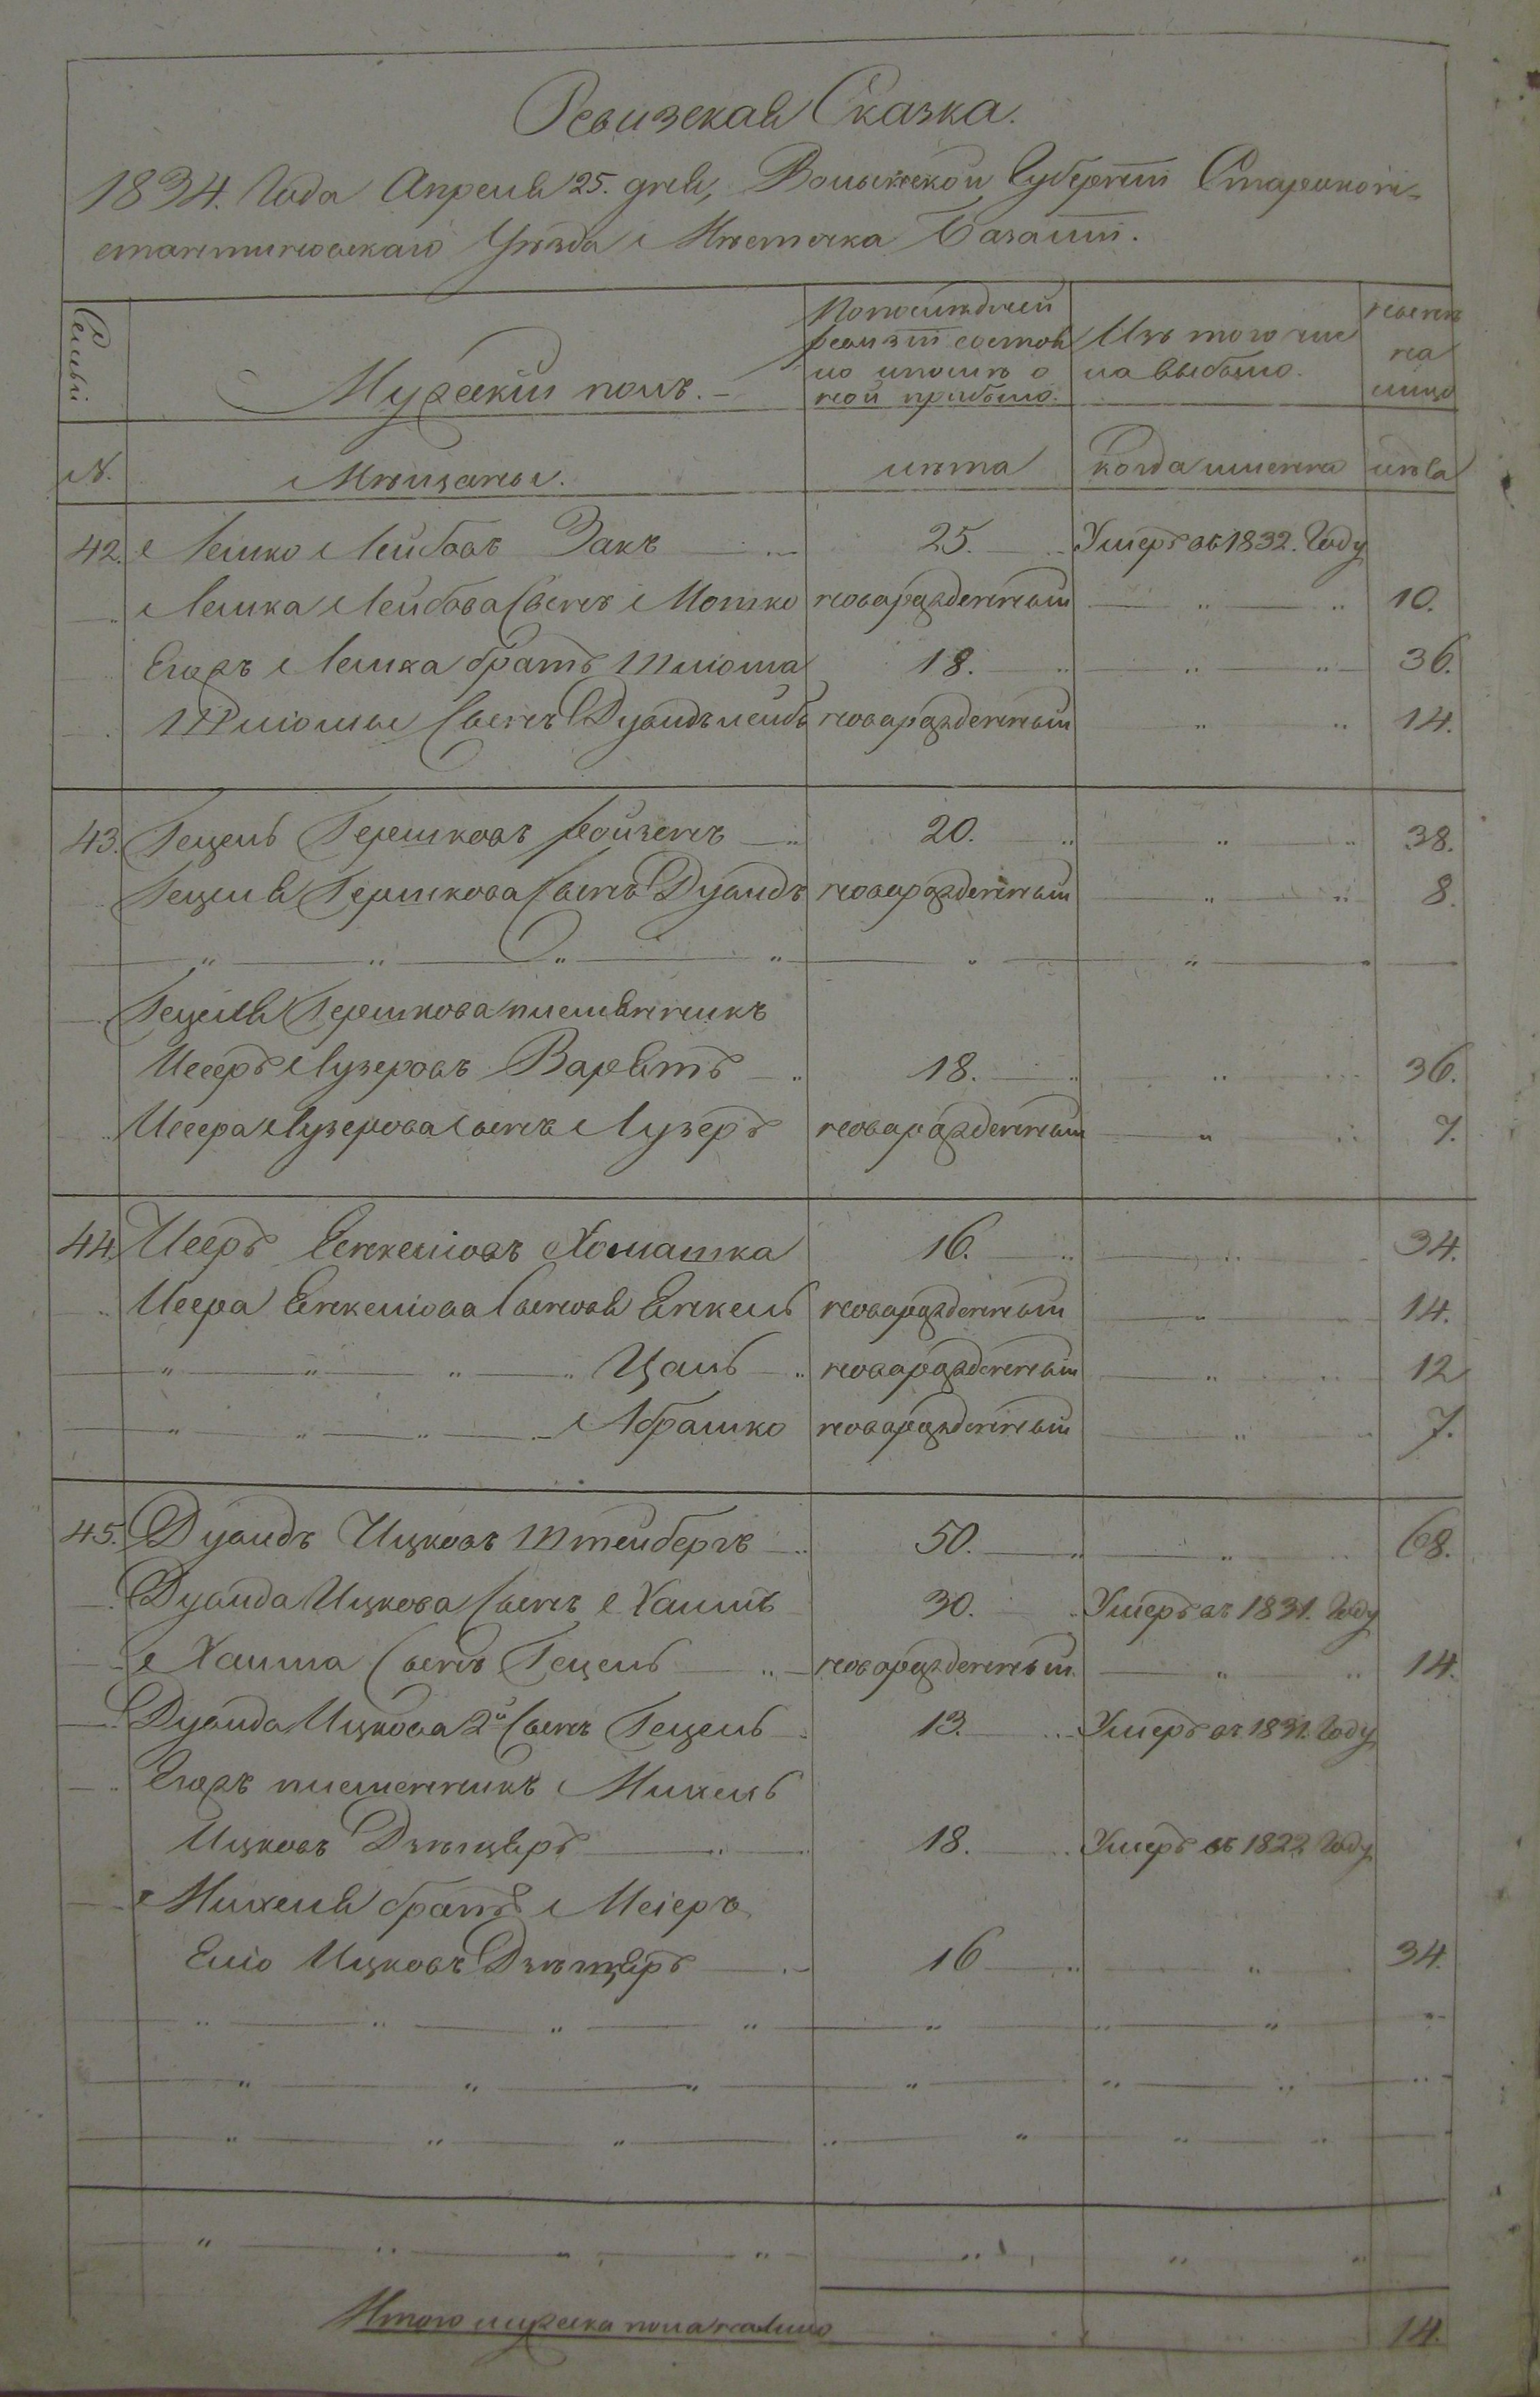 Ревизская Сказка.
1834. Года Апреля 25. дня, Волынской Губерніи Староконс-
тантиновскаго Уѣзда Мѣстечка Базаліи.
Семьи
Мужескій полъ.
По последней ревизіи состояло и послѣ оной прибыло.
Изъ того числа выбыло.
нынѣ на лицо
№. Мѣщаны. лѣта когда именна лѣта
42. Лейбовъ Закъ 25. Умеръ въ 1832. Году
Лейбова Сынъ Мошко новарожденный 10.
Егожъ братъ Шлiома 18. 36.
Шлiомы Сынъ Дувидълейб новарожденный 14.
43. Гецель Гершковъ Ройзенъ 20. 38.
Гецеля Гершкова Сынъ Дувидъ новарожденный 8.
Гецеля Гершкова племянникъ
Иссеръ Лузеровъ 18. 36.
Иссера Лузерова Сынъ Лузеръ новарожденный 7.
44. Иссеръ Енкелiовъ 16. 34.
Иссера Енкелiова Сыновя Енкель новарожденный 14.
Цаль новарожденный 12
Абрашко новарожденный 7.
45. Дувидъ Ицковъ Штейбергъ 50. 68.
Дувида Ицкова Сынъ Хаимъ 30. Умеръ въ 1831. Году
Хаима Сынъ Гецель новарожденный 14.
Дувида Ицкова 2й Сынъ Гецель 13. Умеръ въ 1831. Году
Егожъ племенникъ Михель
Ицковъ 18. Умеръ въ 1822 Году
Михеля братъ Меiеръ
Елiо Ицковъ 16 34.
Итого мужеска пола налицо 14.